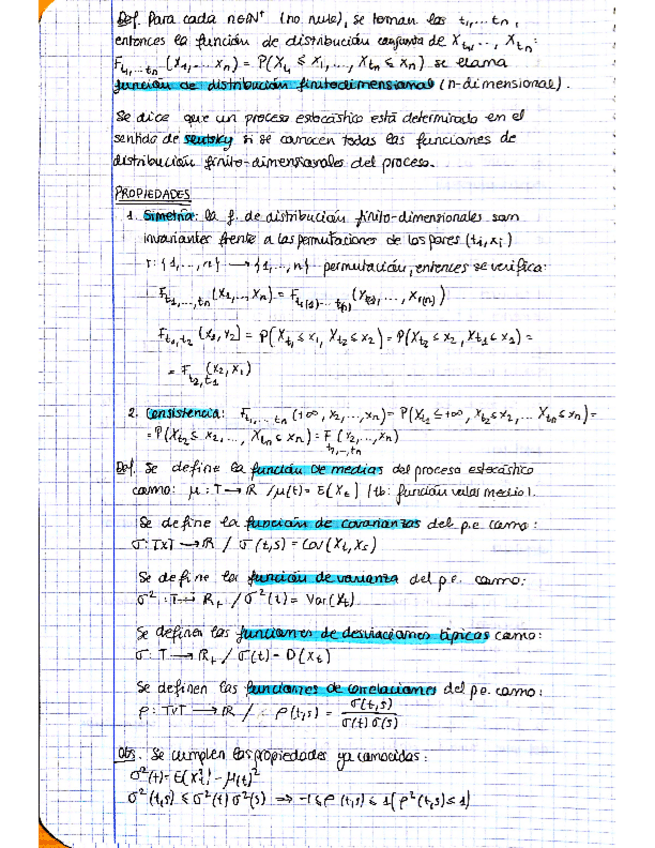 Def. Para cada n∈N⁺ (no nulo), se toman las t₁,...tₙ,
entonces la función de distribución conjunta de X_t₁,..., X_tₙ:
F_t₁,...tₙ (x₁,...xₙ) = P(X_t₁ ≤ x₁,..., X_tₙ ≤ xₙ) se llama
función de distribución finitodimensional (n-dimensional).
Se dice que un proceso estocástico está determinado en el
sentido de Slutsky si se conocen todas las funciones de
distribución finito-dimensionales del proceso.
PROPIEDADES
1. Simetría: la f. de distribución finito-dimensionales son
invariantes frente a las permutaciones de los pares (tᵢ,xᵢ)
r: {1,...,n} → {1,...,n} permutación, entonces se verifica:
F_t₁,...,tₙ (x₁,...,xₙ) = F_t_r(1)...t_r(n) (x_r(1),...,x_r(n))
F_t₁,t₂ (x₁,x₂) = P(X_t₁ ≤ x₁, X_t₂ ≤ x₂) = P(X_t₂ ≤ x₂, X_t₁ ≤ x₁) =
= F_t₂,t₁ (x₂,x₁)
2. Consistencia: F_t₁,...tₙ (+∞, x₂,...,xₙ) = P(X_t₁ ≤ +∞, X_t₂ ≤ x₂,... X_tₙ ≤ xₙ) =
= P(X_t₂ ≤ x₂,..., X_tₙ ≤ xₙ) = F_t₂,...,tₙ (x₂,...,xₙ)
Def. Se define la función de medias del proceso estocástico
como: μ: T → R / μ(t) = E[X_t] (tb: función valor medio).
Se define la función de covarianzas del p.e como:
σ: TxT → R / σ(t,s) = Cov(X_t, X_s)
Se define la función de varianza del p.e. como:
σ²: T → R₊ / σ²(t) = Var(X_t)
Se definen las funciones de desviaciones típicas como:
σ: T → R₊ / σ(t) = D(X_t)
Se definen las funciones de correlaciones del p.e. como:
ρ: TxT → R / : ρ(t,s) = σ(t,s) / σ(t) σ(s)
Obs. Se cumplen las propiedades ya conocidas:
σ²(t) = E(X_t²) - μ(t)²
σ²(t,s) ≤ σ²(t) σ²(s) ⇒ -1 ≤ ρ(t,s) ≤ 1 (ρ²(t,s) ≤ 1)